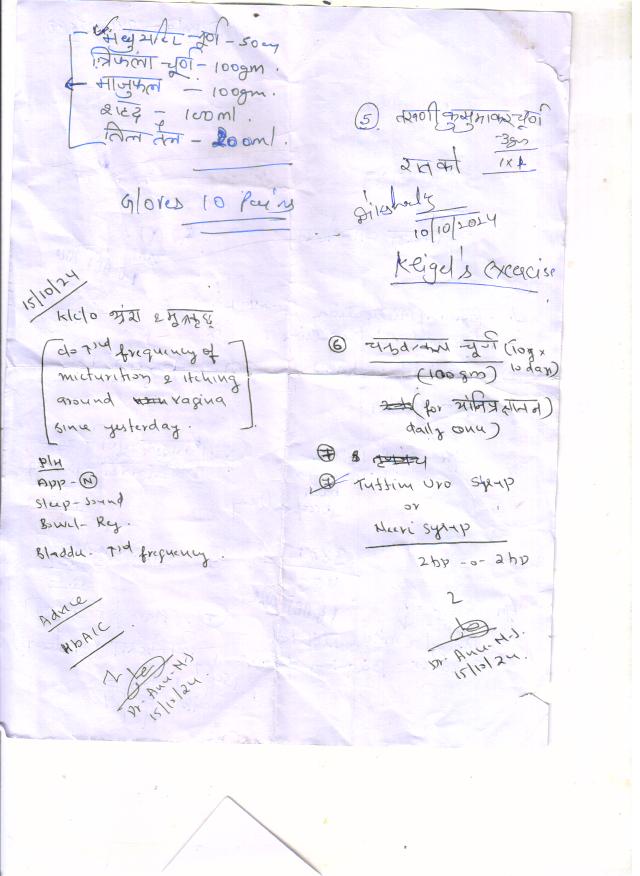 चूर्ण - 50gm
त्रिफला चूर्ण - 100gm.
माजुफल - 100gm.
शहद - 100ml.
तिल तेल - 200ml.
Gloves 10 Pairs
15/10/24
K/C/O भ्रंश & मूत्रकृच्छ्र
C/o ↑ed frequency of
micturition & itching
around vagina
since yesterday.
P/H
App - N
Sleep - sound
Bowel - Reg.
Bladder - ↑ed frequency.
Advice
HbA1C
Dr. Anu. N.S.
15/10/24
5 कुसुमाकर चूर्ण
3gm
1 x 1
रात को
10/10/2024
Keigel's exercise
6 चूर्ण (10g x 10 days)
(100gm)
(for योनिप्रक्षालन)
daily once)
7 Tuffim Uro Syrup
or
Neeri Syrup
2 bp - o - 2 bp
Dr. Anu. N.S.
15/10/24.